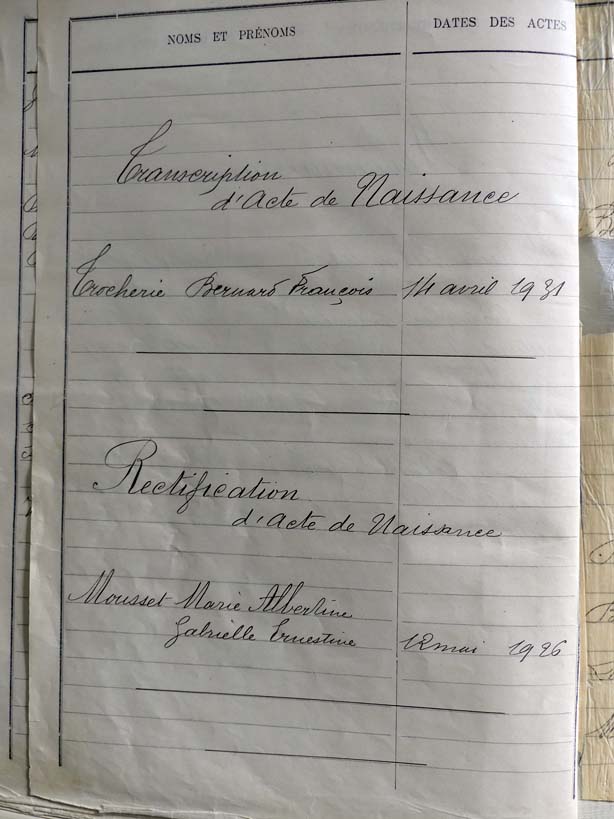 NOMS ET PRÉNOMS
DATES DES ACTES
Transcription
d'Acte de Naissance
Trocherie Bernard François 14 avril 1931
Rectification
d'Acte de Naissance
Mousset Marie Albertine
Gabrielle Ernestine 12 mai 1926